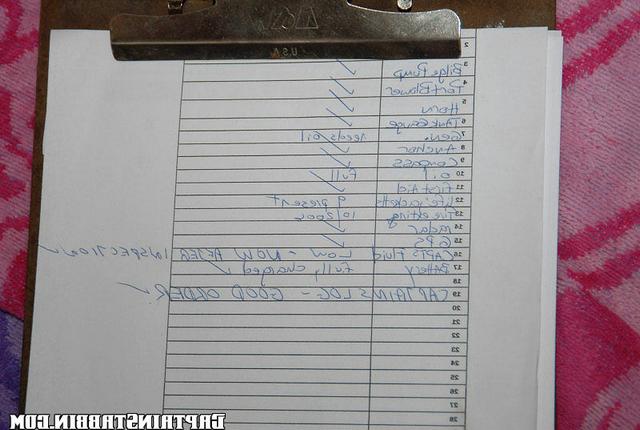 U.S.A
2
3 Bilge Pump ✓
4 Port Blower ✓
5 Horn ✓
6 Tank Gauge ✓
7 Gen. needs oil
8 Anchor ✓
9 Compass ✓
10 oil Full
11 First Aid ✓
12 Life jackets 9 present
13 Fire exting 10/2004
14 radar ✓
15 GPS ✓
16 CAPT'S Fluid LOW - NOW AFTER INSPECTION ✓
17 Battery fully charged ✓
18
19 CAPTAINS LOG - GOOD ORDER ✓
20
21
22
23
24
25
26
27
28
CAPTAINSTABBIN.COM